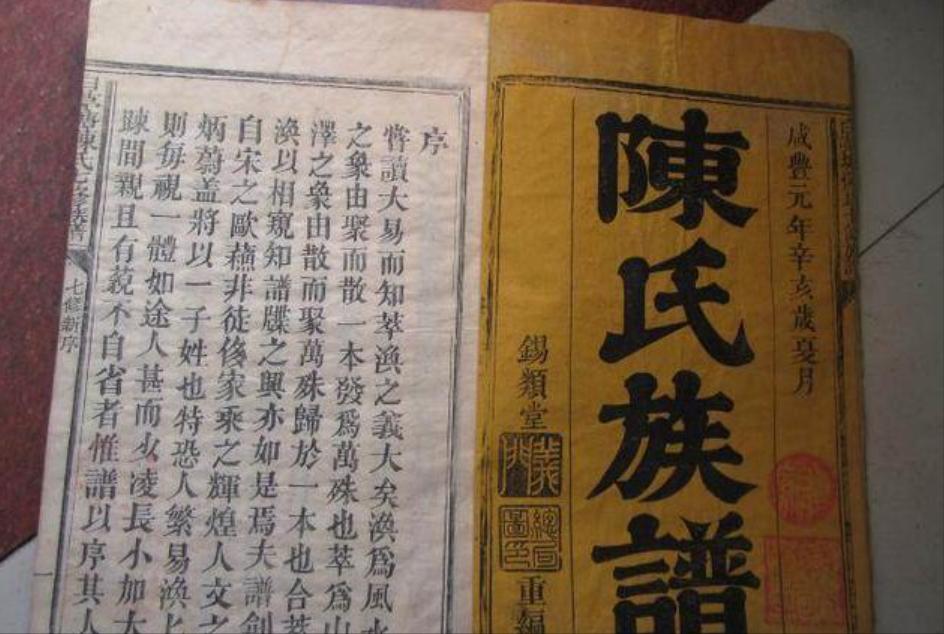 咸豐元年辛亥歲夏月
陳氏族譜
錫類堂
重編
序
嘗讀大易而知萃渙之義大矣渙爲風水
之象由聚而散一本發爲萬殊也萃爲
澤之象由散而聚萬殊歸於一本也合萃
渙以相窺知譜牒之興亦如是焉夫譜創
自宋之歐蘓非徒侈家乘之輝煌人文之
炳蔚盖將以一子姓也特恐人繁易渙
則每視一體如途人甚而少凌長小加大
踈間親且有藐不自省者惟譜以序其人
七修新序